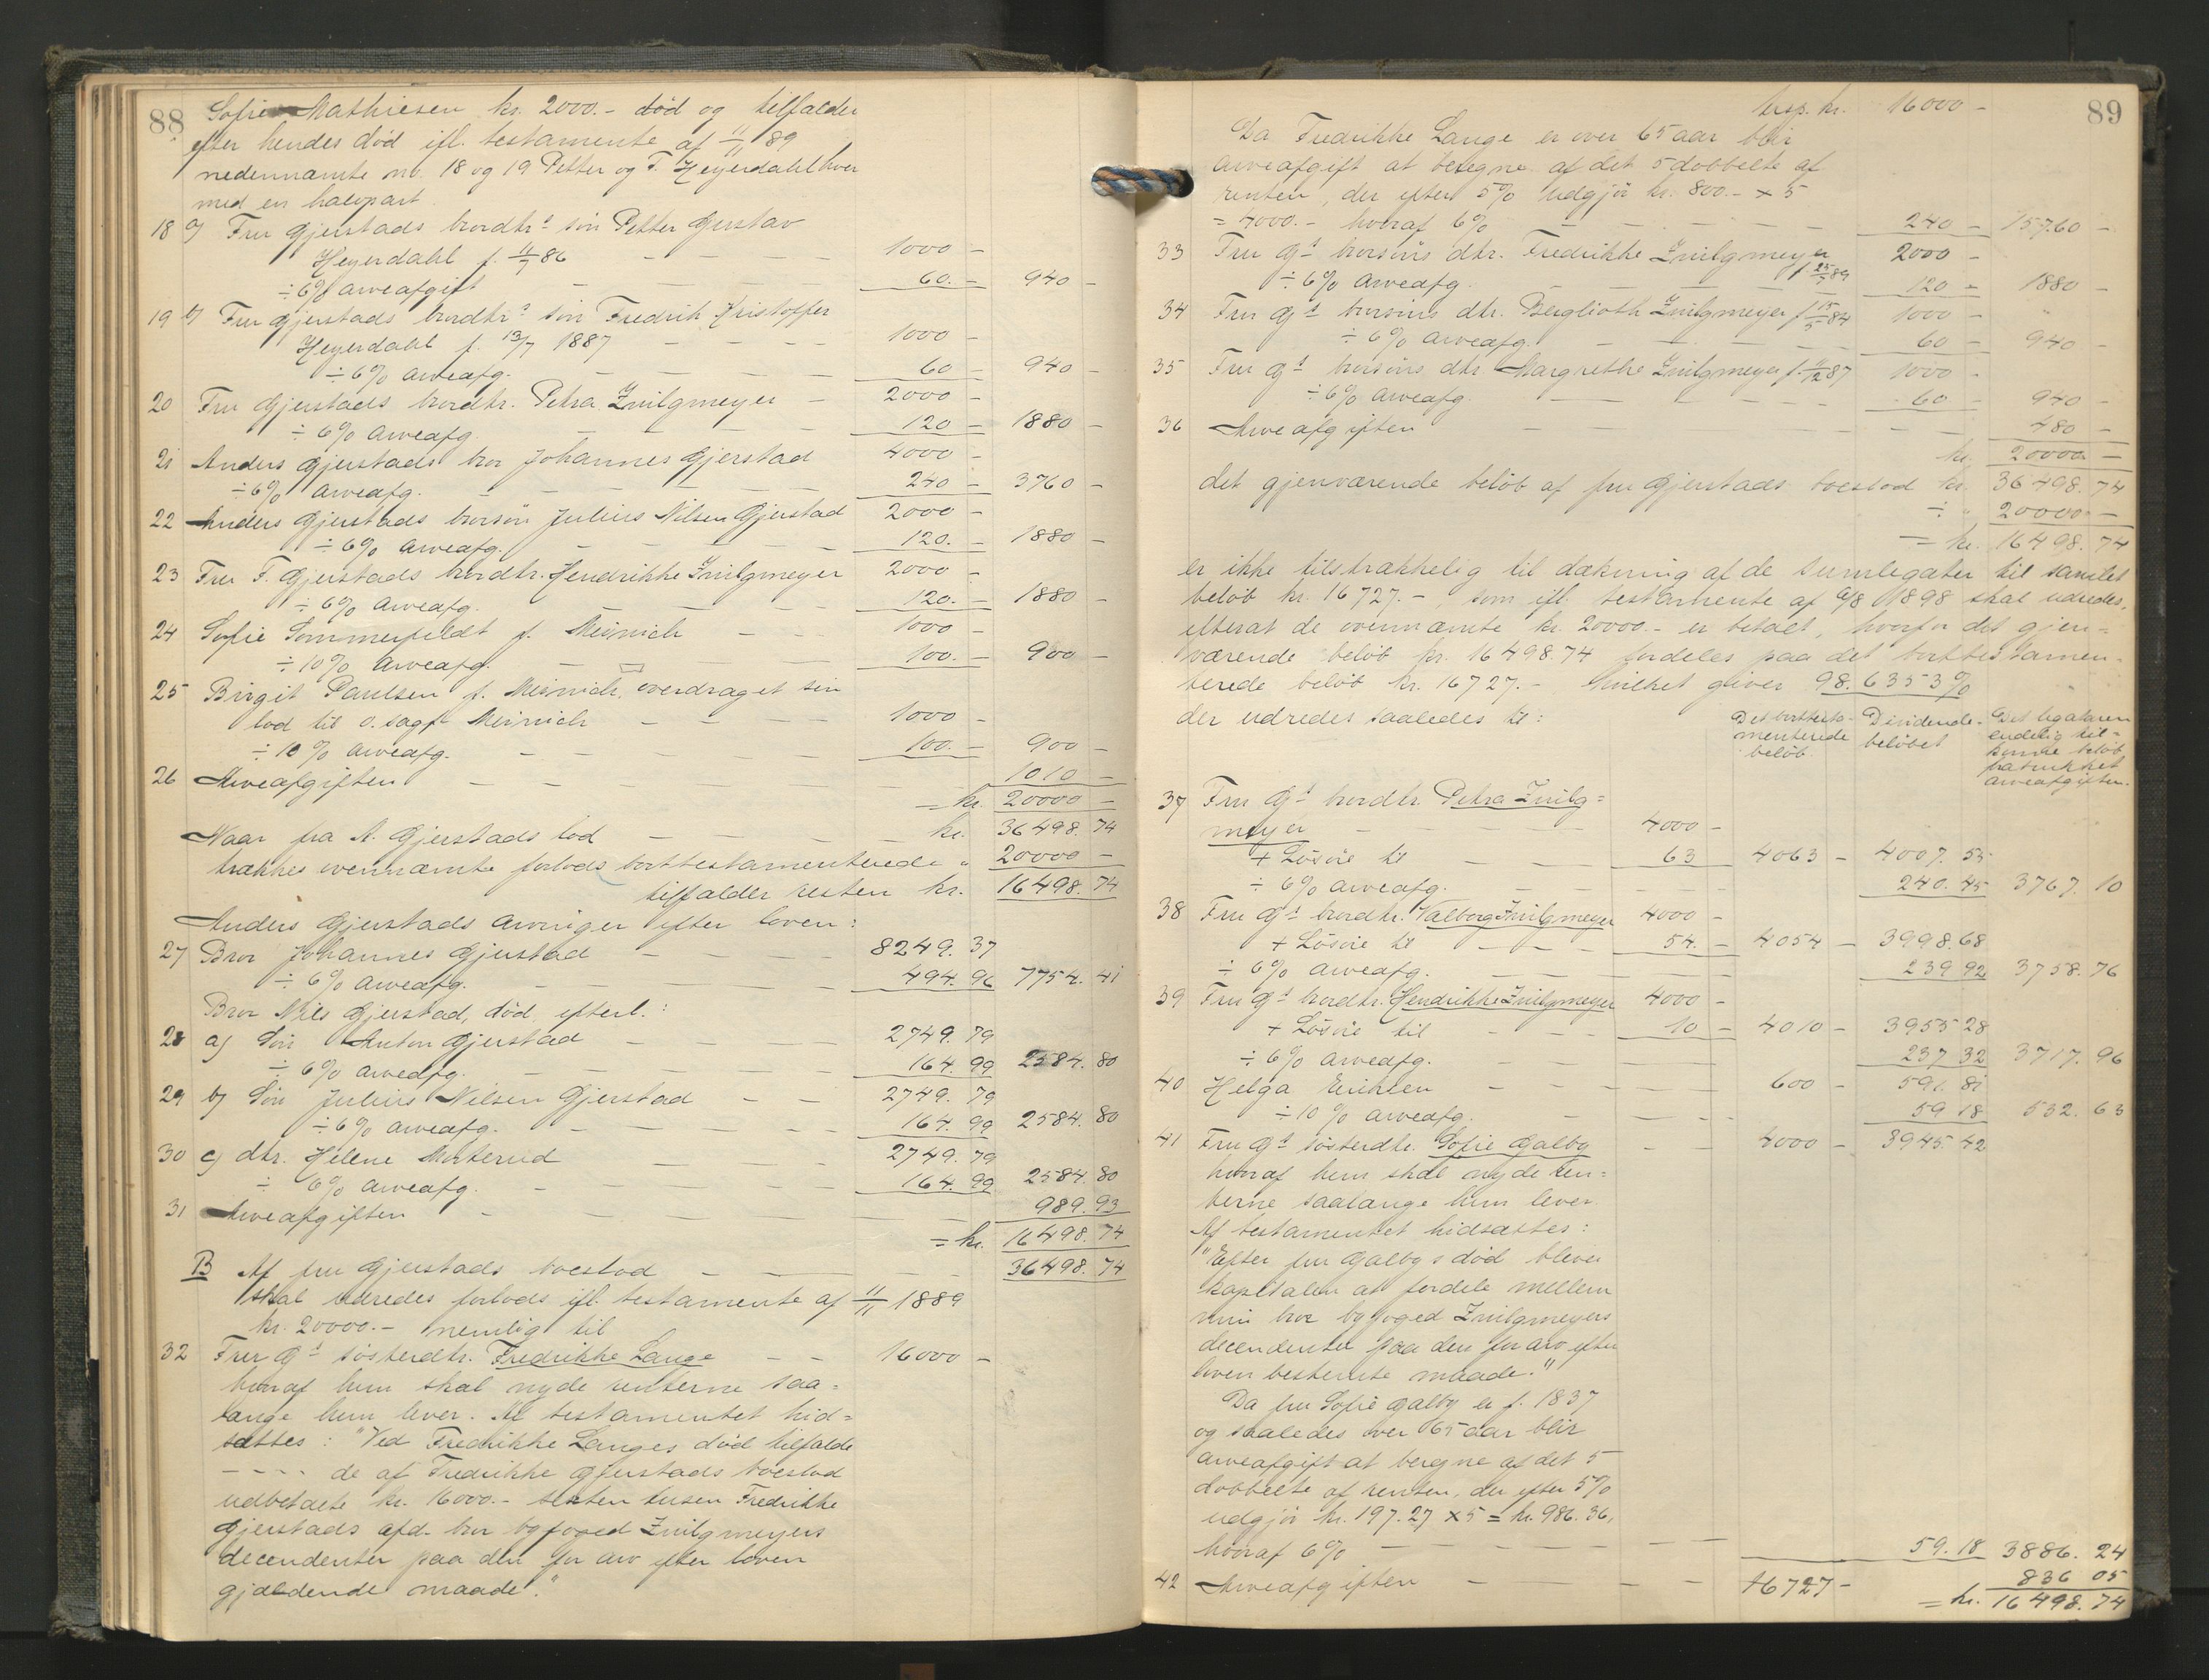 88
Sofie Mathiesen kr. 2000.- död og tilfalder
efter hendes död ifl. testamente af 11/11 89
nedennævnte no. 18 og 19 Petter og F. Heyerdahl hver
med en halvpart.
18 a) Fru Gjerstads brordtrs sön Petter Gustav
Heyerdahl f. 11/7 86 — — — 1000 -
÷ 6% arveafgift — — 60. - 940 -
19 b) Fru Gjerstads brordtrs sön Fredrik Kristoffer
Heyerdahl f. 13/7 1887 — — — 1000 -
÷ 6% arveafg. — — — 60 - 940 -
20 Fru Gjerstads brordtr. Petra Zwilgmeyer — 2000 -
÷ 6% arveafg. — — — 120 - 1880 -
21 Anders Gjerstads bror Johannes Gjerstad 4000 -
÷ 6% arveafg. — — — 240 - 3760 -
22 Anders Gjerstads brorsön Julius Nilsen Gjerstad 2000 -
÷ 6% arveafg. — — — 120. - 1880 -
23 Fru F. Gjerstads brordtr. Hendrikke Zwilgmeyer 2000 -
÷ 6% arveafg. — — — 120. - 1880 -
24 Sofie Sommerfeldt f. Meinich — — 1000 -
÷ 10% arveafg. — — — 100. - 900 -
25 Birgit Paulsen f. Meinich, overdraget sin
lod til o.sagf. Meinich — — — 1000 -
÷ 10% arveafg. — — — 100. - 900 -
26 Arveafgiften — — — 1010 -
= kr. 20000 -
Naar fra A. Gjerstads lod — — — kr. 36498. 74
trækkes ovennævnte forlods borttestamenterede " 20000 -
tilfalder resten kr. 16498. 74
Anders Gjerstads arvinger efter loven:
27 Bror Johannes Gjerstad — — — 8249. 37
÷ 6% arveafg. — — — 494. 96 7754. 41
Bror Nils Gjerstad, död, efterl.:
28 a) Sön Anton Gjerstad — — — 2749. 79
÷ 6% arveafg. — — — 164. 99 2584. 80
29 b) Sön Julius Nilsen Gjerstad — — 2749. 79
÷ 6% arveafg. — — — 164. 99 2584. 80
30 c) dtr. Helene Moterud — — — 2749. 79
÷ 6% arveafg. — — — 164. 99 2584. 80
31 Arveafgiften — — — 989. 93
= kr. 16498. 74
B Af fru Gjerstads boeslod — — — 36498. 74
skal udredes forlods ifl. testamente af 11/11 1889
kr. 20000.- nemlig til
32 Fru Gs sösterdtr. Fredrikke Lange — — 16000 -
hvoraf hun skal nyde renterne saa=
længe hun lever. Af testamentet hid=
sættes: "Ved Fredrikke Langes död tilfalde
- - - - de af Fredrikke Gjerstads boeslod
udbetalte kr. 16000.- seksten tusen Fredrikke
Gjerstads afd. bror byfoged Zwilgmeyers
decendenter paa den for arv efter loven
gjældende maade."
89
trsp. kr. 16000 -
Da Fredrikke Lange er over 65 aar blir
arveafgift at beregne af det 5 dobbelte af
renten, der efter 5% udgjör kr. 800.- x 5
= 4000.- hvoraf 6% — — — 240 - 15760 -
33 Fru Gs brorsöns dtr. Fredrikke Zwilgmeyer 2000 -
÷ 6% arveafg. — — 120 - 1880 -
34 Fru Gs brorsöns dtr. Berglioth Zwilgmeyer f. 15/5 84 1000 -
÷ 6% arveafg. — — — 60 - 940 -
35 Fru Gs brorsöns dtr. Margrethe Zwilgmeyer f. 11/12 87 1000 -
÷ 6% arveafg. — — — 60 - 940 -
36 Arveafgiften — — — 480 -
kr. 20000 -
det gjenværende belöb af fru Gjerstads boeslod kr. 36498. 74
÷ " 20000 -
= kr. 16498. 74
er ikke tilstrækkelig til dækning af de sumlegater til samlet
belöb kr. 16727.-, som ifl. testamente af 6/8 1898 skal udredes,
efterat de ovennævnte kr. 20000.- er betalt, hvorfor det gjen=
værende belöb kr. 16498.74 fordeles paa det borttestamen=
terede belöb kr. 16727.- hvilket giver 98.6353%
der udredes saaledes til:
Det borttesta-
menterede
belöb.
Dividende-
belöbet
Det legataren
endelig til=
komne belöb
fratrukket
arveafgiften.
37 Fru Gs brordtr. Petra Zwilg=
meyer — — — 4000 -
+ Lösöre til — — 63 4063 - 4007. 55
÷ 6% arveafg. — — — 240. 45 3767. 10
38 Fru Gs brordtr. Valborg Zwilgmeyer 4000 -
+ Lösöre til — — 54. - 4054 - 3998.68
÷ 6% arveafg. — — — 239 92 3758. 76
39 Fru Gs brordtr. Hendrikke Zwilgmeyer 4000 -
+ Lösöre til — — 10 - 4010 - 3955 28
÷ 6% arveafg. — — — 237 32 3717. 96
40 Helga Eriksen — — — 600 - 591. 81
÷ 10% arveafg. — — — 59 18 532. 63
41 Fru Gs sösterdtr. Sofie Galby — — 4000 - 3945 42
hvoraf hun skal nyde ren=
terne saalænge hun lever.
Af testamentet hidsættes:
"Efter fru Galbys död bliver
kapitalen at fordele mellem
min bror byfoged Zwilgmeyers
decendenter paa den for arv efter
loven bestemte maade."
Da fru Sofie Galby er f. 1837
og saaledes over 65 aar blir
arveafgift at beregne af det 5
dobbelte af renten, der efter 5%
udgjör kr. 197.27 x 5 = kr. 986.36,
hvoraf 6% — — — 59. 18 3886. 24
42 Arveafgiften — — — 16727 - 836 05
= kr. 16498. 74